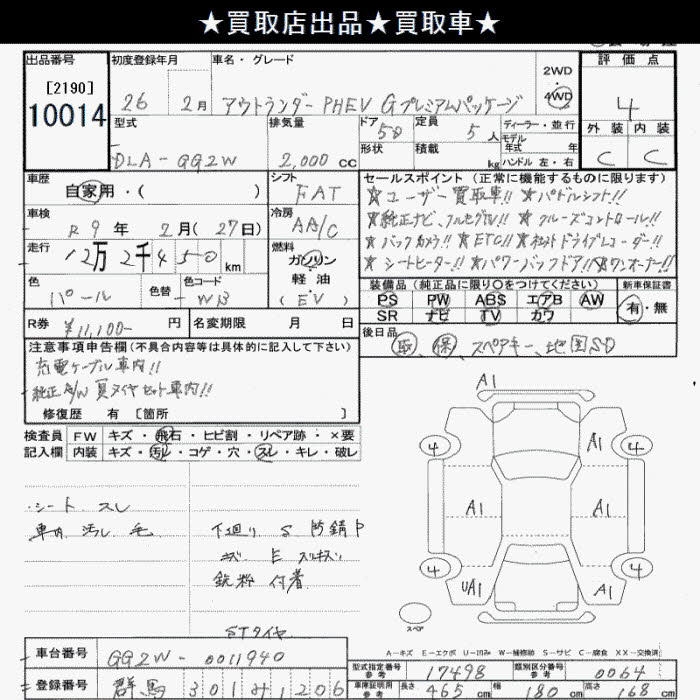 ★買取店出品★買取車★
出品番号 初度登録年月 車名・グレード 評価点
[2190]
10014
26 2月 アウトランダーPHEV Gプレミアムパッケージ
2WD
4WD
4
型式 排気量 ドア 5D 定員 5人 ディーラー・並行
モデル
年式 年
外装 内装
DLA-GG2W 2,000 cc 形状 積載 kg ハンドル 左・右 C C
車歴 シフト セールスポイント (正常に機能するものに限ります)
自家用・( ) FAT ★ユーザー買取車!! ★パドルシフト!!
車検 冷房 ★純正ナビ、フルセグTV!! ★クルーズコントロール!!
R9年 2月(27日) AA/C
走行 燃料 ★バックカメラ!! ★ETC!! ★社外ドライブレコーダー!!
12万2千450km ガソリン
軽油
(EV)
★シートヒーター!! ★パワーバックドア!! ★ワンオーナー!!
色 色替 色コード 装備品 (純正品に限り○をつけてください) 新車保証書
パール WB PS PW ABS エアB AW 有・無
SR ナビ TV カワ
R券 ¥11,100- 円 名変期限 月 日 後日品
取、保、スペアキー、地図SD
注意事項申告欄(不具合内容等は具体的に記入して下さい)
充電ケーブル車内!!
純正A/W夏タイヤセット車内!!
修復歴 有 [箇所 ]
検査員 FW キズ・飛石・ヒビ割・リペア跡・×要
記入欄 内装 キズ・汚レ・コゲ・穴・スレ・キレ・破レ
A1
4 A1 4
A1 A1
4 4
UA1 A1
スペア
・シート スレ
車内 汚レ 毛 下廻り S 防錆P
キズ E スリキズ
鉄粉 付着
STタイヤ
A-キズ E-エクボ U-凹み W-補修跡 S-サビ C-腐食 XX-交換済
車台番号 GG2W-0011940
型式指定番号 参考 17498 類別区分番号 参考 0064
登録番号 群馬 301 み 1206
車庫証明用 参考 長さ 465 cm 幅 180 cm 高さ 168 cm